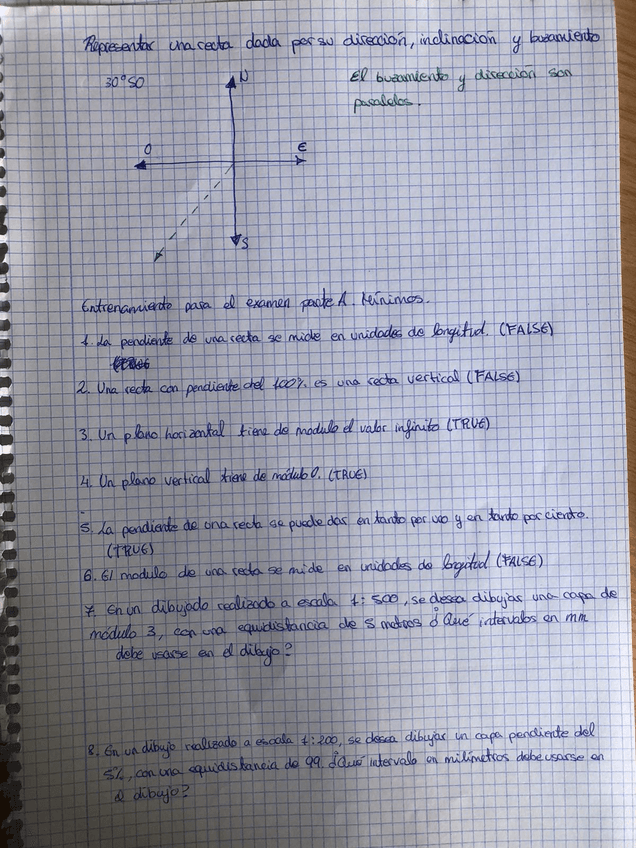 Representar una recta dada por su dirección, inclinación y buzamiento
30° SO
N
El buzamiento y dirección son
paralelos.
O
E
S
Entrenamiento para el examen parte A. Mínimos.
1. La pendiente de una recta se mide en unidades de longitud. (FALSE)
2. Una recta con pendiente del 100% es una recta vertical (FALSE)
3. Un plano horizontal tiene de modulo el valor infinito (TRUE)
4. Un plano vertical tiene de módulo 0. (TRUE)
5. La pendiente de una recta se puede das en tanto por uno y en tanto por ciento.
(TRUE)
6. El modulo de una recta se mide en unidades de longitud (FALSE)
7. En un dibujado realizado a escala 1:500, se desea dibujar una capa de
módulo 3, con una equidistancia de 5 metros ¿Qué intervalos en mm
debe usarse en el dibujo?
8. En un dibujo realizado a escala 1:200, se desea dibujar un capa pendiente del
5%, con una equidistancia de 99. ¿Qué intervalo en milímetros debe usarse en
dibujo?